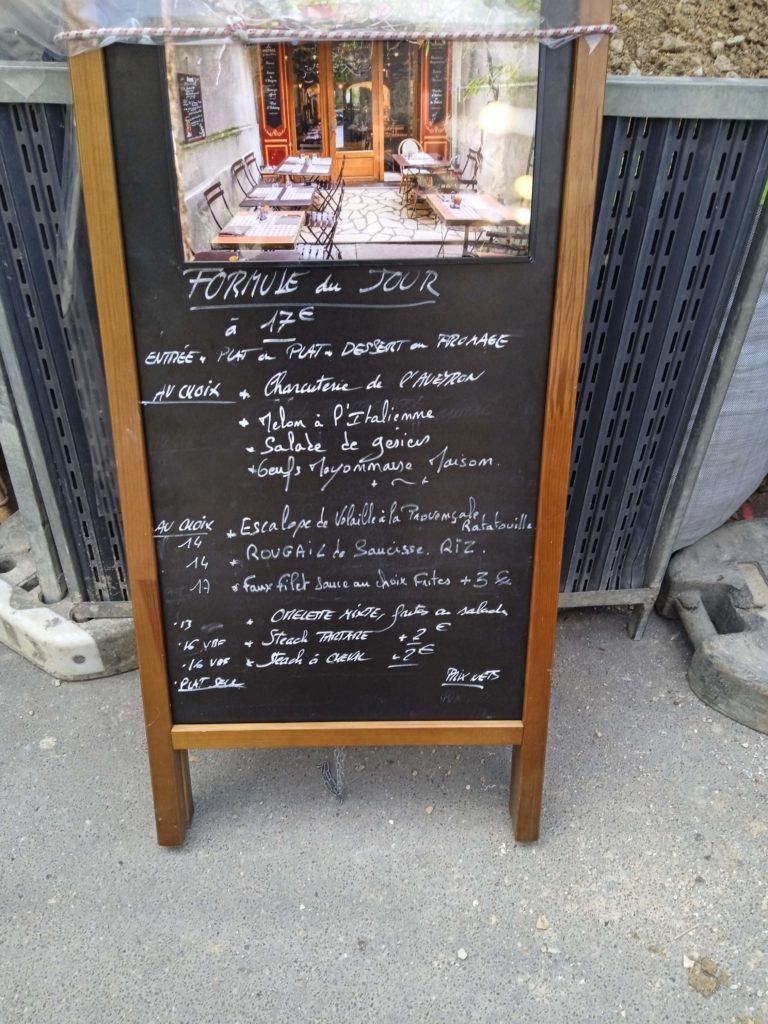 FORMULE du JOUR
à 17€
ENTRÉE + PLAT ou PLAT + DESSERT ou FROMAGE
AU CHOIX * Charcuterie de l'AVEYRON
* Melon à l'Italienne
* Salade de gesiers
* Oeufs Mayonnaise Maison.
+ ~ +
AU CHOIX * Escalope de Volaille à la Provençale Ratatouille
14 * ROUGAIL de Saucisse. RIZ.
14
17 * Faux filet sauce au choix Frites + 3 €
. 13 * OMELETTE MIXTE, frites ou salade
. 16 VBF * Steack TARTARE + 2 €
. 16 VBF * Steack à CHEVAL + 2 €
. PLAT SEUL PRIX NETS